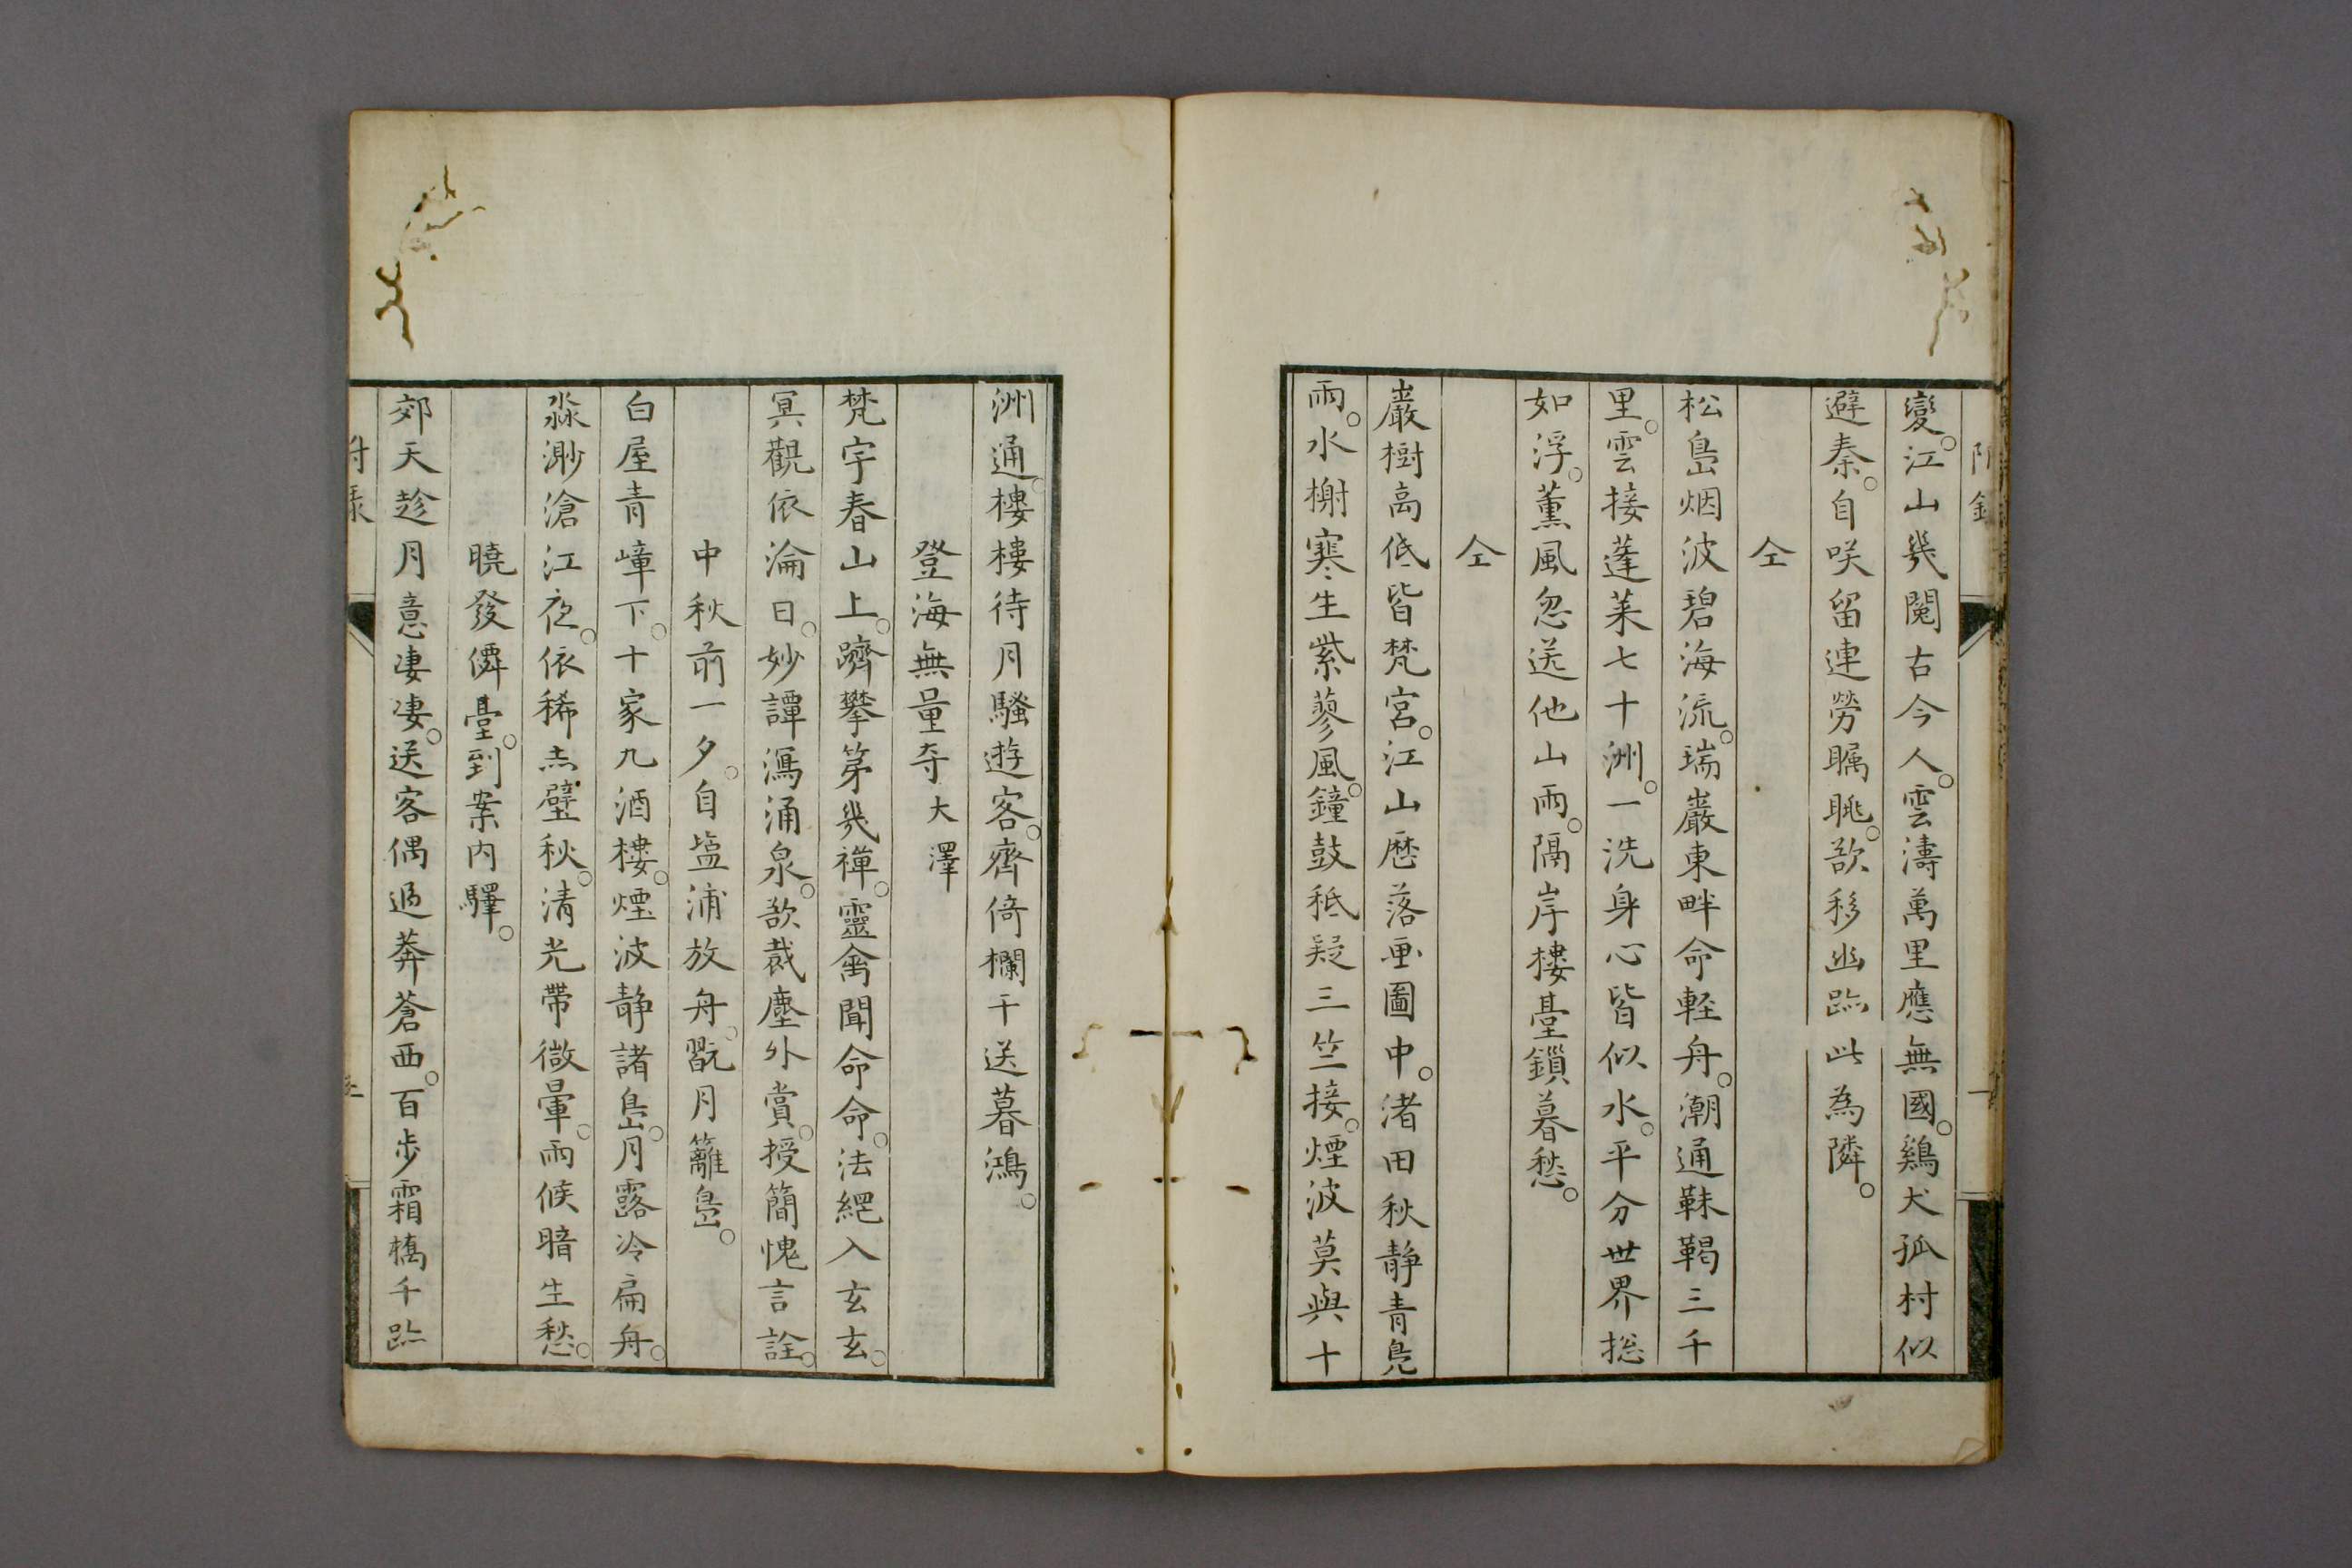 變。江山幾閱古今人。雲濤萬里應無國。鷄犬孤村似
避秦。自咲留連勞矚眺。欲移幽跡此為隣。
仝
松島烟波碧海流。瑞巖東畔命軽舟。潮通靺鞨三千
里。雲接蓬莱七十洲。一洗身心皆似水。平分世界総
如浮。薫風忽送他山雨。隔岸樓臺鎖暮愁。
仝
巖樹高低皆梵宮。江山歴落画圖中。渚田秋静青鳧
雨。水榭寒生紫蓼風。鐘鼓秪疑三竺接。煙波莫與十
洲通。樓樓待月騷遊客。齊倚欄干送暮鴻。
登海無量寺 大澤
梵宇春山上。躋攀第幾禅。靈禽聞命命。法縄入玄玄。
冥觀依淪日。妙譚瀉涌泉。欲裁塵外賞。授簡愧言詮。
中秋前一夕。自塩浦放舟。翫月籬島。
白屋青嶂下。十家九酒樓。煙波静諸島。月露冷扁舟。
淼渺滄江夜。依稀赤壁秋。清光帶微暈。雨候暗生愁。
曉發僊臺。到案内驛。
郊天趁月意凄凄。送客偶過莽蒼西。百歩霜橋千跡